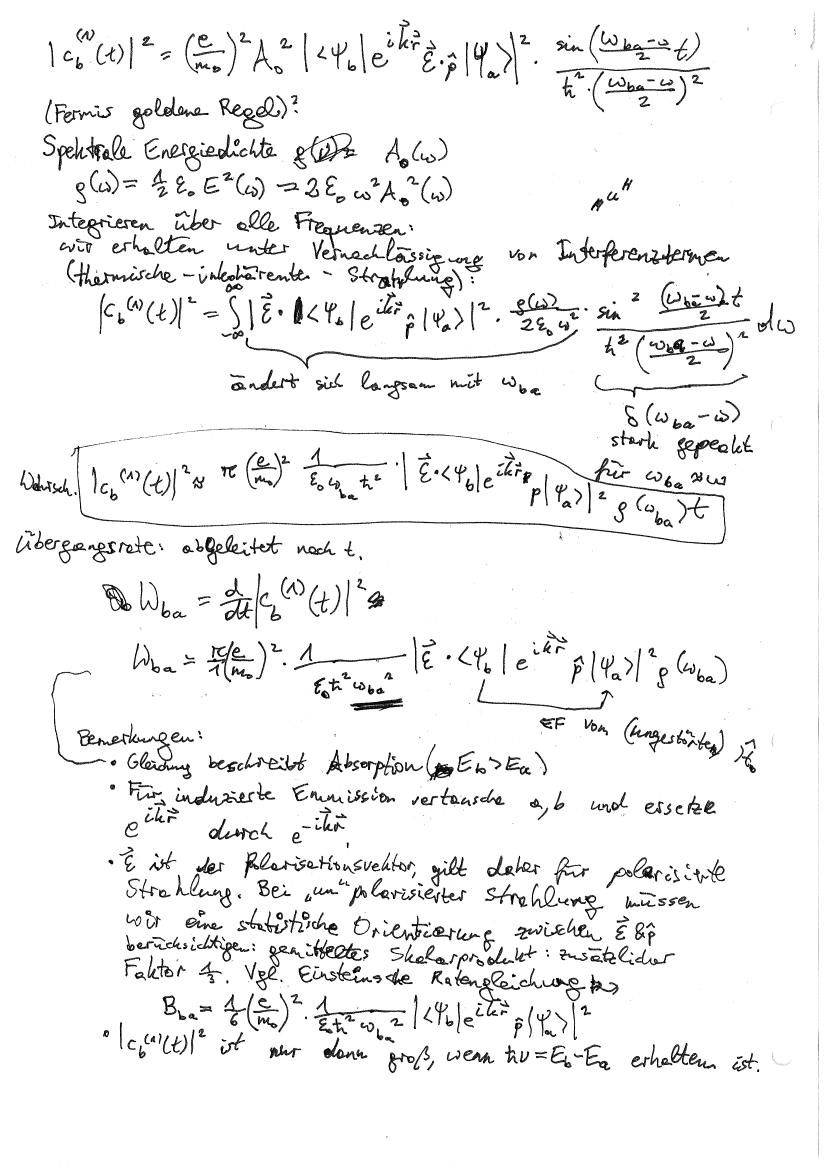 |c_b^(1)(t)|² = (e/m₀)² A₀² |<Ψ_b| e^{i k⃗ r⃗} ε⃗·p̂ |Ψ_a>|² · sin((ω_ba-ω)/2 t) / (ħ²·((ω_ba-ω)/2)²)
(Fermis goldene Regel)?
Spektrale Energiedichte A₀(ω)
ϱ(ω) = 1/2 ε₀ E²(ω) = 2 ε₀ ω² A₀²(ω)
Integrieren über alle Frequenzen:
wir erhalten unter Vernachlässigung von Interferenztermen
(thermische-inkohärente-Strahlung):
|c_b^(1)(t)|² = ∫_{-∞}^{∞} |ε⃗·<Ψ_b| e^{i k⃗ r⃗} p̂ |Ψ_a>|² · ϱ(ω)/(2 ε₀ ω²) · sin² ((ω_ba-ω)t/2) / (ħ² ((ω_ba-ω)/2)²) dω
ändert sich langsam mit ω_ba
δ(ω_ba-ω)
stark gepeakt
für ω_ba ≈ ω
Wahrsch. |c_b^(1)(t)|² ≈ π (e/m₀)² 1/(ε₀ ω_ba ħ²) · |ε⃗·<Ψ_b| e^{i k⃗ r⃗} p |Ψ_a>|² ϱ(ω_ba) t
Übergangsrate: abgeleitet nach t.
W_ba = d/dt |c_b^(1)(t)|²
W_ba = π/1 (e/m₀)² · 1/(ε₀ ħ² ω_ba²) |ε⃗·<Ψ_b| e^{i k⃗ r⃗} p̂ |Ψ_a>|² ϱ(ω_ba)
EF vom (ungestörten)
Bemerkungen:
• Gleichung beschreibt Absorption (E_b > E_a)
• Für induzierte Emmission vertausche a,b und ersetze
e^{i k⃗ r⃗} durch e^{-i k⃗ r⃗}
• ε⃗ ist der Polarisationsvektor, gilt daher für polarisierte
Strahlung. Bei „un"polarisierter Strahlung müssen
wir eine statistische Orientierung zwischen ε⃗ & p̂
berücksichtigen: gemitteltes Skalarprodukt: zusätzlicher
Faktor 1/3. Vgl. Einsteinsche Ratengleichung
B_ba = 1/6 (e/m₀)² · 1/(ε₀ ħ² ω_ba²) |<Ψ_b| e^{i k⃗ r⃗} p̂ |Ψ_a>|²
• |c_b^(1)(t)|² ist nur dann groß, wenn ħν = E_b - E_a erhalten ist.